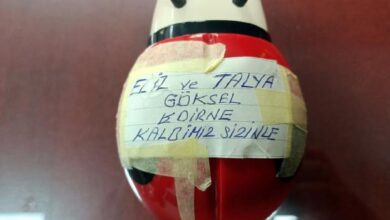 ELİZ ve TALYA
GÖKSEL
EDİRNE
KALBİMİZ SİZİNLE